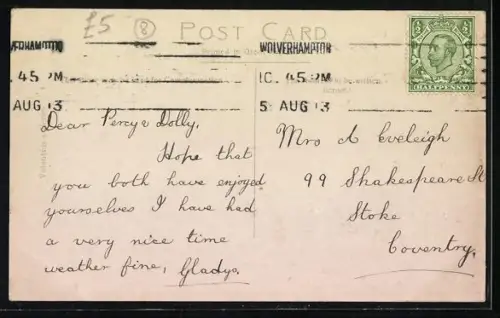 £5 8
POST CARD
WOLVERHAMPTON WOLVERHAMPTON
.45 PM 10.45 PM
AUG 13 5 AUG 13
½ ½
HALFPENNY
Dear Percy & Dolly,
Hope that
you both have enjoyed
yourselves I have had
a very nice time
weather fine, Gladys.
Mrs A Eveleigh
99 Shakespeare St
Stoke
Coventry.